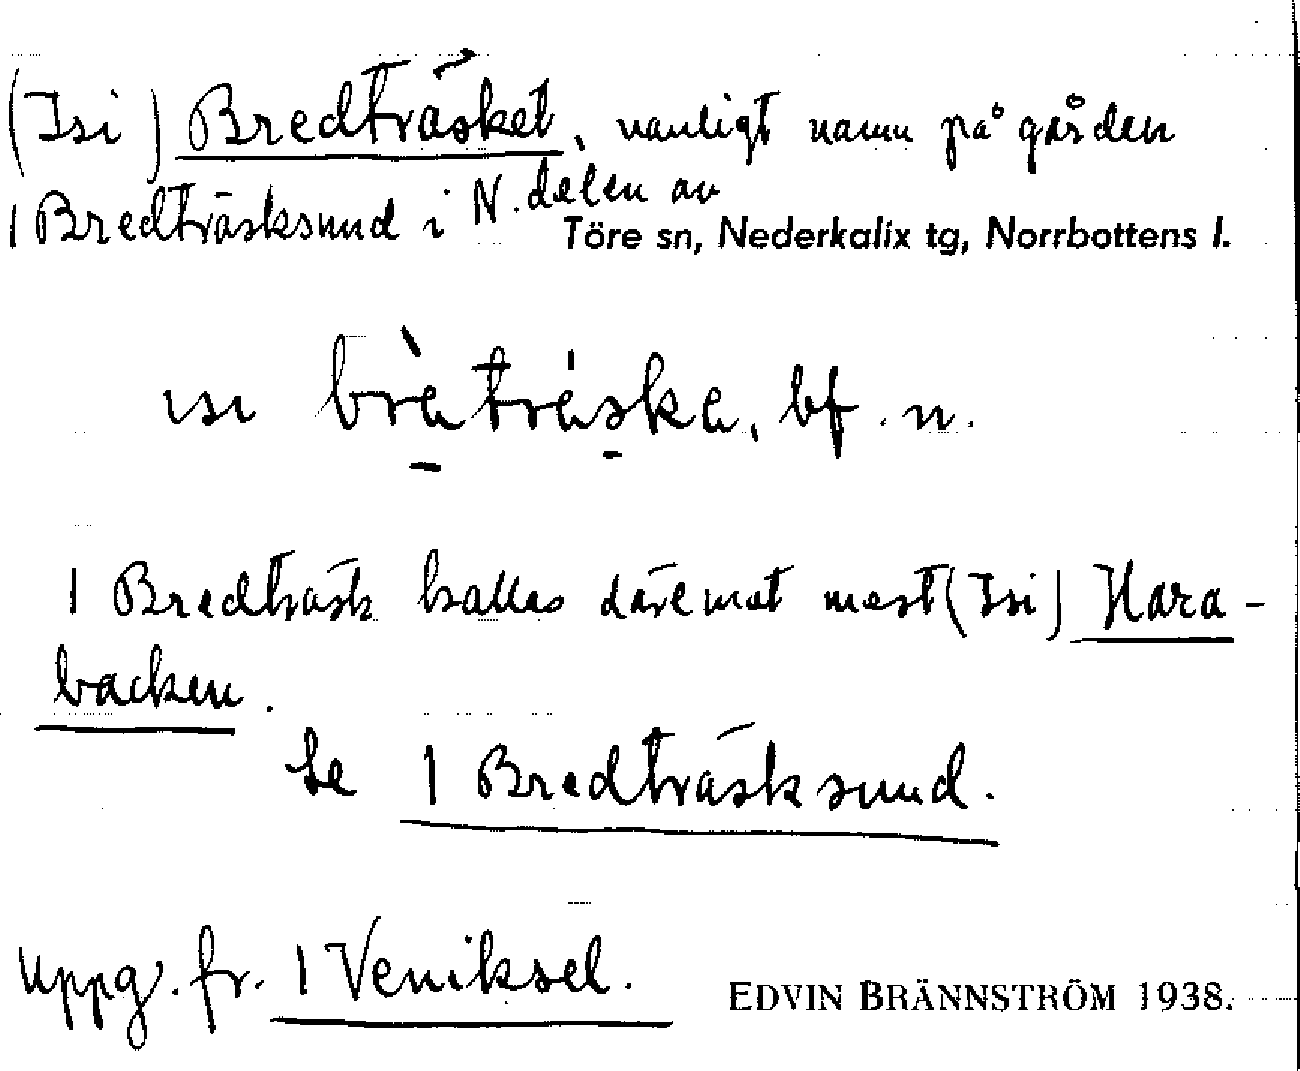 (Isi) Bredträsket, vanligt namn på gården
1 Bredträsksund i N. delen av
Töre sn, Nederkalix tg, Norrbottens l.
ısı brètrèske, bf. n.
1 Bredträsk kallas däremot mest (Isi) Hara-
backen.
Se 1 Bredträsksund.
Uppg. fr. 1 Veniksel.
EDVIN BRÄNNSTRÖM 1938.